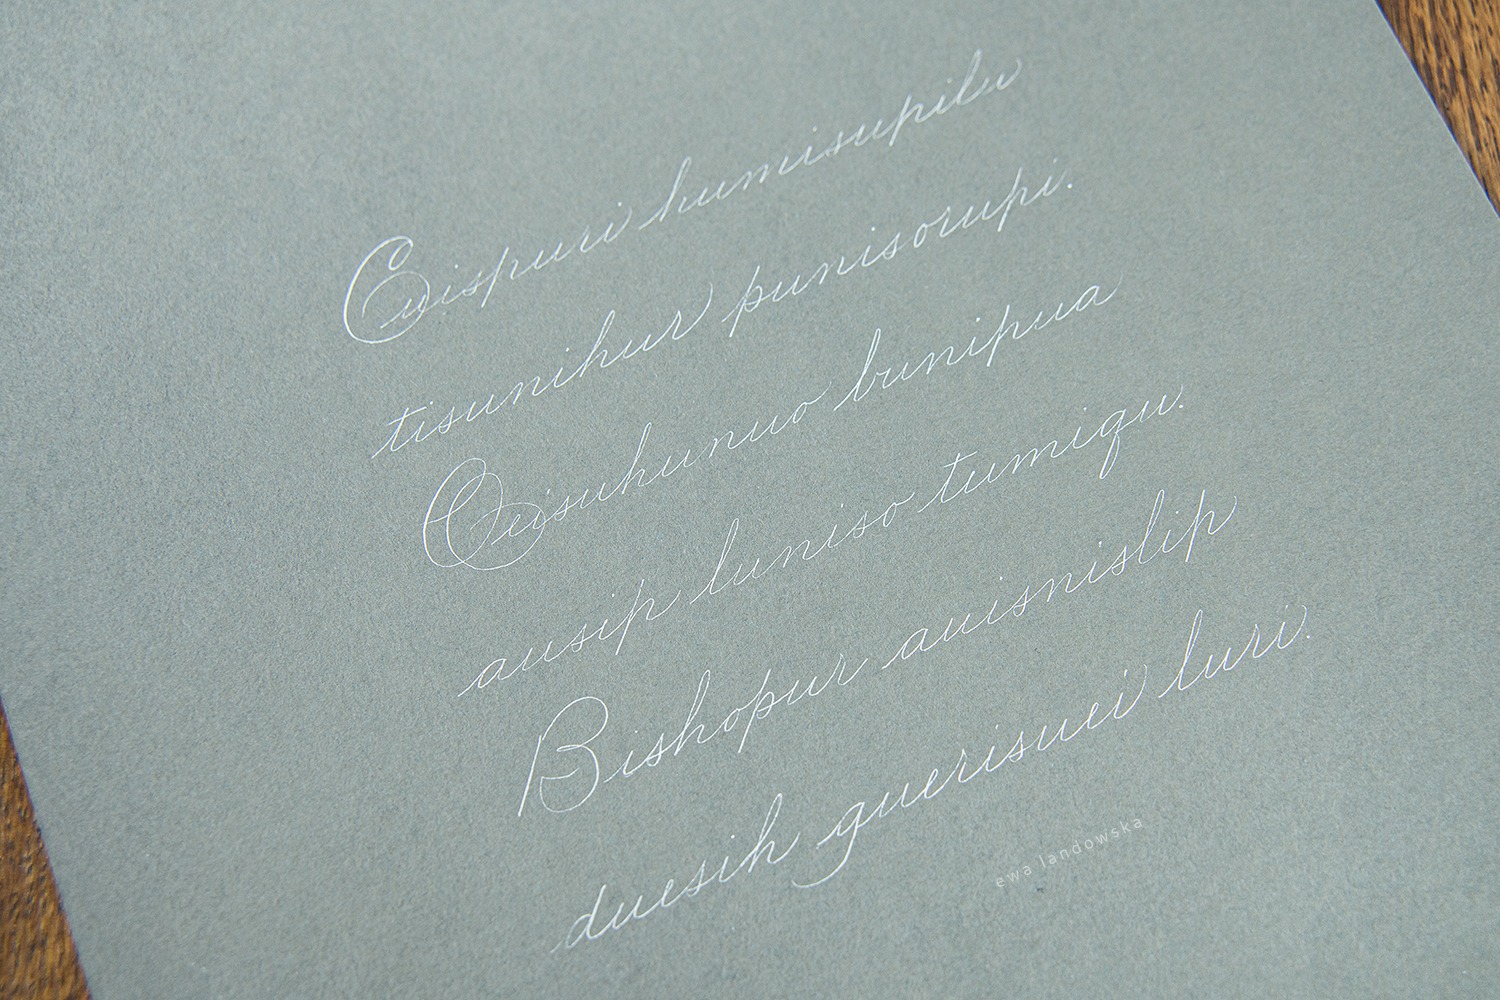 Cuispuri humisupilu
tisunihur punisorupi.
Oeisuhunuo bunipua
ausip luniso tumiqu.
Bishopur auisnislip
duesih guerisuei luri.
ewa landowska